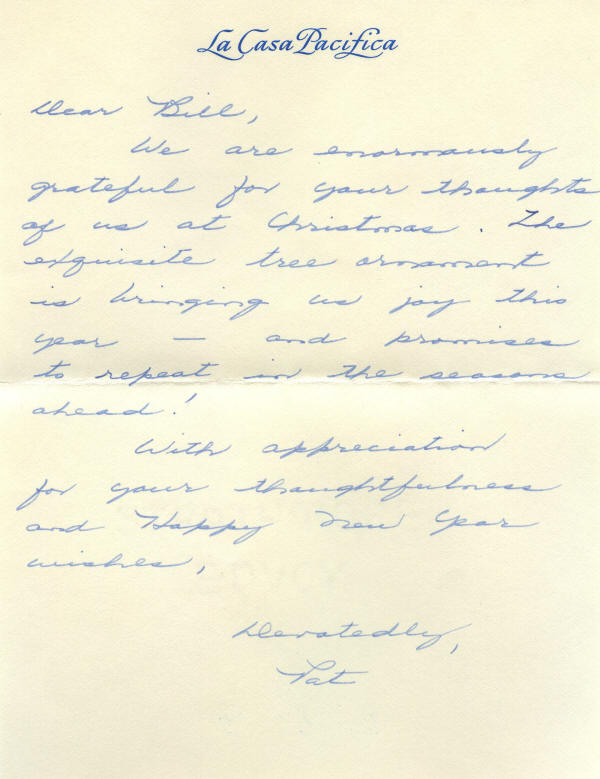 La Casa Pacifica
Dear Bill,
We are enormously
grateful for your thoughts
of us at Christmas. The
exquisite tree ornament
is bringing us joy this
year — and promises
to repeat in the seasons
ahead!
With appreciation
for your thoughtfulness
and Happy New Year
wishes,
Devotedly,
Pat